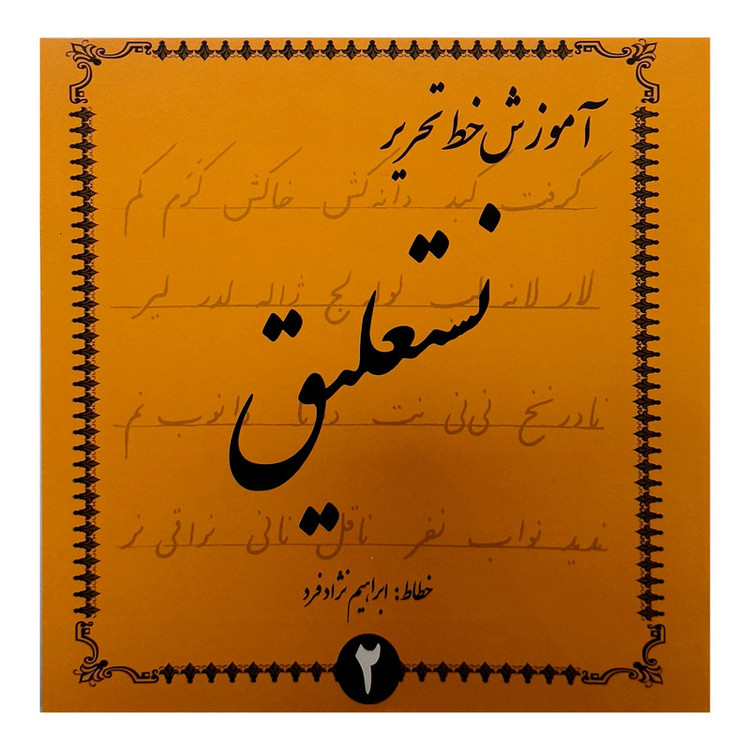 آموزش خط تحریر
گرفت گنبد دانه کش خاکش گزم کم
نستعلیق
لار لانه لواء لج ژاله لدر لیر
نادر نخ نی‌نی نت نانوب نم
ندید نواب نفر ناقل نانی نراقی نر
خطاط: ابراهیم نژادفرد
۲